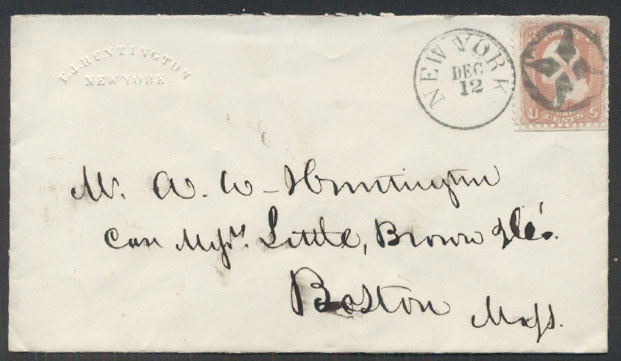 F.J. HUNTINGTON
NEW YORK.
NEW YORK
DEC
12
U S
Mr. A. W. Huntington
Care Messrs. Little, Brown & Co.
Boston Mass.